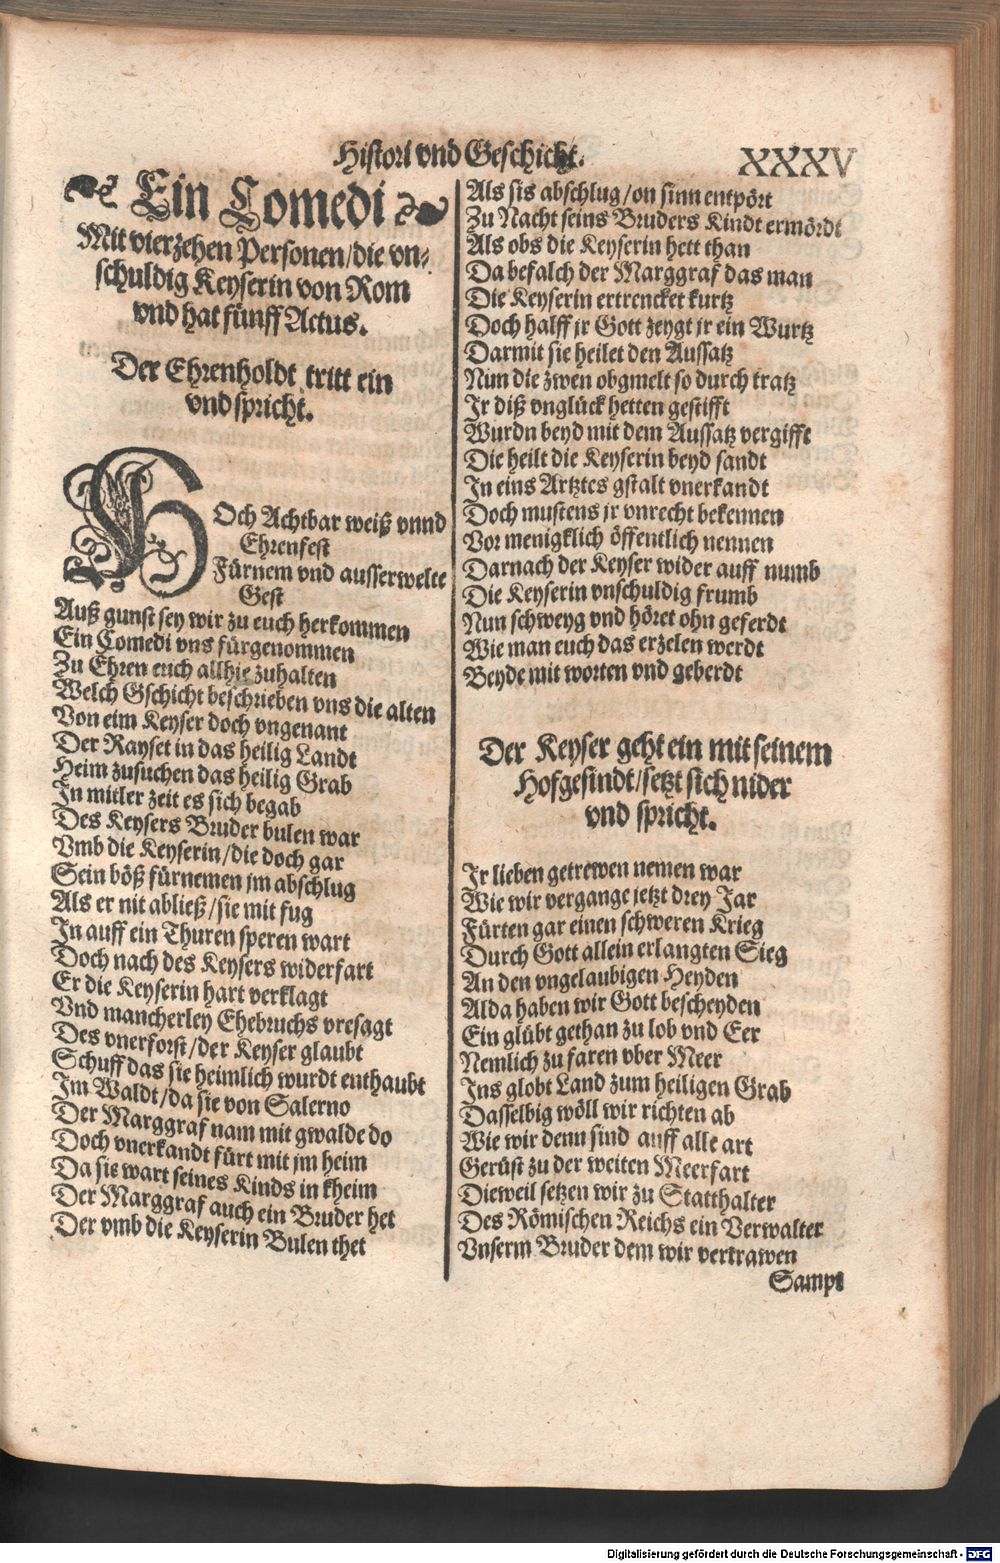 Histori vnd Geschicht.
XXXV
Ein Comedi
Mit vierzehen Personen/die vn⸗
schuldig Keyserin von Rom
vnd hat fünff Actus.
Der Ehrenholdt tritt ein
vnd spricht.
HOch Achtbar weiß vnnd
Ehrenfest
Fürnem vnd ausserwelte
Gest
Auß gunst sey wir zu euch herkommen
Ein Comedi vns fürgenommen
Zu Ehren euch allhie zuhalten
Welch Gschicht beschrieben vns die alten
Von eim Keyser doch vngenant
Der Rayset in das heilig Landt
Heim zusuchen das heilig Grab
In mitler zeit es sich begab
Des Keysers Bruder bulen war
Vmb die Keyserin/die doch gar
Sein böß fürnemen jm abschlug
Als er nit abließ/sie mit fug
In auff ein Thuren speren wart
Doch nach des Keysers widerfart
Er die Keyserin hart verklagt
Vnd mancherley Ehebruchs vresagt
Des vnerforst/der Keyser glaubt
Schuff das sie heimlich wurdt enthaubt
Im Waldt/da sie von Salerno
Der Marggraf nam mit gwalde do
Doch vnerkandt fürt mit jm heim
Da sie wart seines Kinds in kheim
Der Marggraf auch ein Bruder het
Der vmb die Keyserin Bulen thet
Als sis abschlug/on sinn entpört
Zu Nacht seins Bruders Kindt ermördt
Als obs die Keyserin hett than
Da befalch der Marggraf das man
Die Keyserin ertrencket kurtz
Doch halff jr Gott zeygt jr ein Wurtz
Darmit sie heilet den Aussatz
Nun die zwen obgmelt so durch tratz
Ir diß vnglück hetten gestifft
Wurdn beyd mit dem Aussatz vergifft
Die heilt die Keyserin beyd sandt
In eins Artztes gstalt vnerkandt
Doch mustens jr vnrecht bekennen
Vor menigklich öffentlich nennen
Darnach der Keyser wider auff numb
Die Keyserin vnschuldig frumb
Nun schweyg vnd höret ohn geferdt
Wie man euch das erzelen werdt
Beyde mit worten vnd geberdt
Der Keyser geht ein mit seinem
Hofgesindt/setzt sich nider
vnd spricht.
Ir lieben getrewen nemen war
Wie wir vergange jetzt drey Jar
Fürten gar einen schweren Krieg
Durch Gott allein erlangten Sieg
An den vngelaubigen Heyden
Alda haben wir Gott bescheyden
Ein glübt gethan zu lob vnd Eer
Nemlich zu faren vber Meer
Ins globt Land zum heiligen Grab
Dasselbig wöll wir richten ab
Wie wir denn sind auff alle art
Gerüst zu der weiten Meerfart
Dieweil setzen wir zu Statthalter
Des Römischen Reichs ein Verwalter
Vnserm Bruder dem wir vertrawen
Sampt
Digitalisierung gefördert durch die Deutsche Forschungsgemeinschaft - DFG